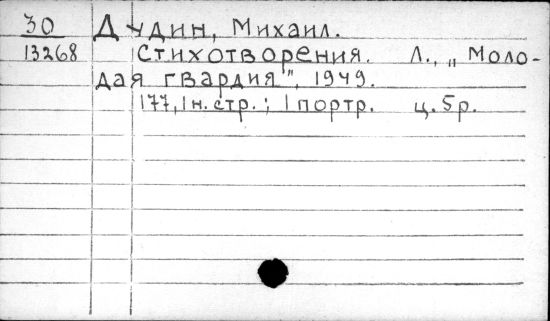 30 Дудин, Михаил.
13268 Стихотворения. Л., „Моло-
дая гвардия", 1949.
177, 1 н. стр.; 1 портр. ц. 5 р.